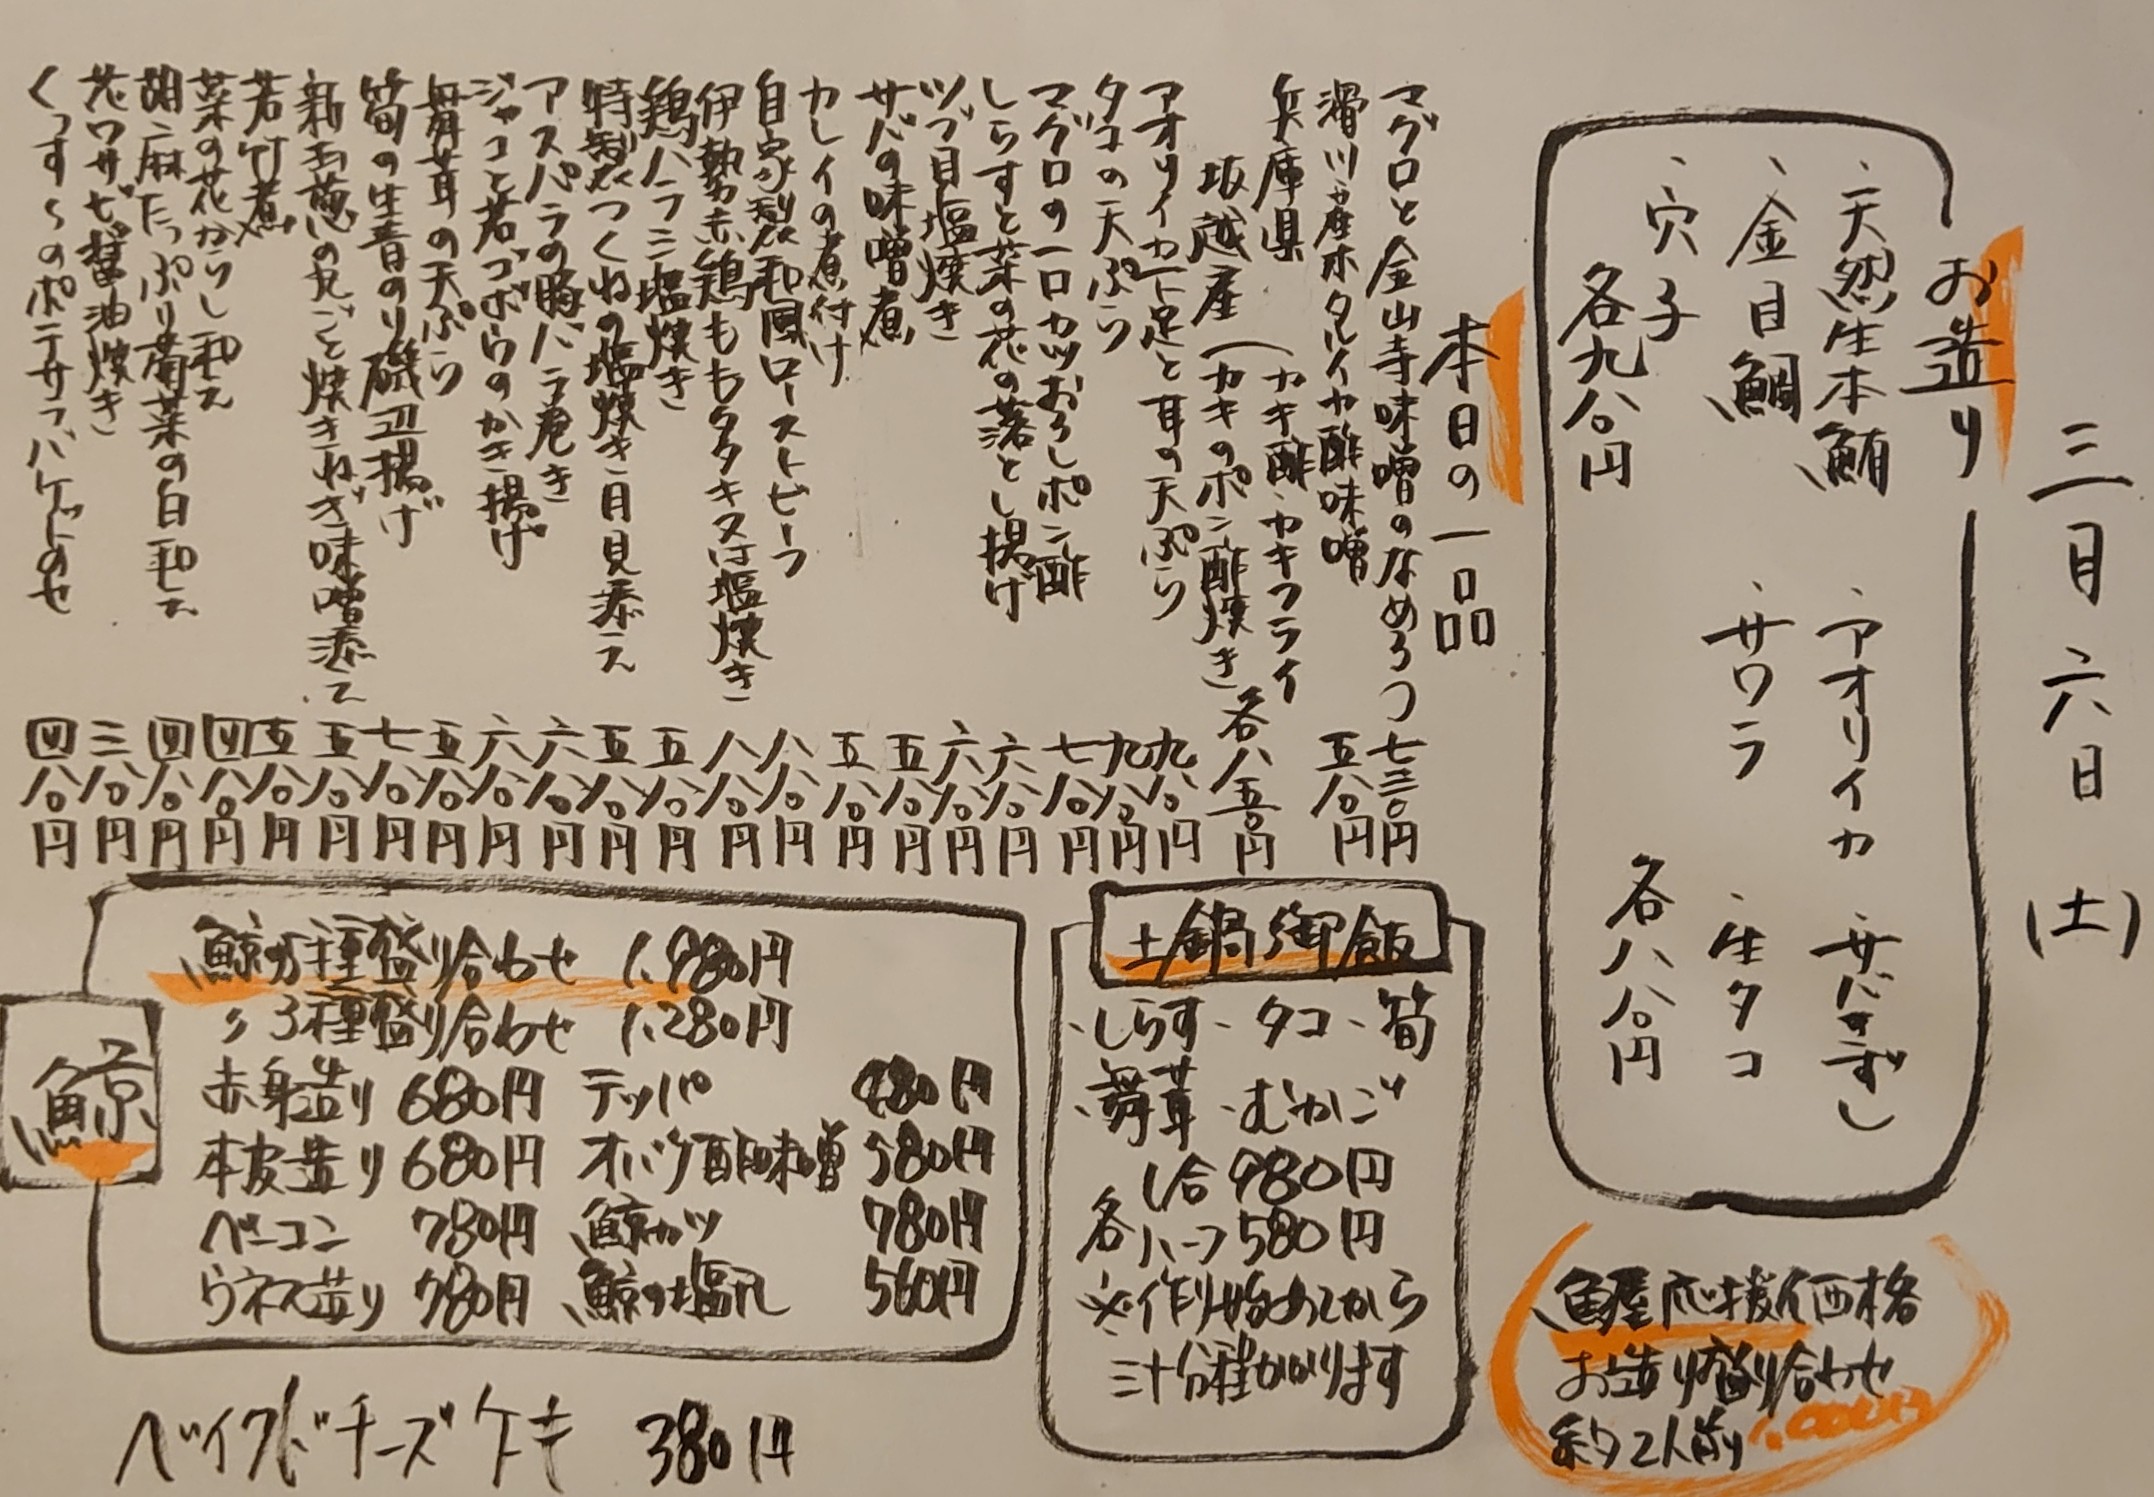 三月六日(土)
お造り
、天然生本鮪 、アオリイカ 、サバきずし
、金目鯛 、サワラ 、生タコ
、穴子
各九八〇円 各八八〇円
魚屋応援価格
お造り盛り合わせ
約2人前 1,000円
本日の一品
マグロと金山寺味噌のなめろう 七三〇円
滑川産ホタルイカ酢味噌 五八〇円
兵庫県 (カキ酢・カキフライ
坂越産 (カキのポン酢焼き 各八五〇円
アオリイカ下足と耳の天ぷら 九八〇円
タコの天ぷら 九八〇円
マグロの一口カツおろしポン酢 七八〇円
しらすと菜の花の落とし揚げ 六八〇円
ツブ貝塩焼き 六八〇円
サバの味噌煮 五八〇円
カレイの煮付け 五八〇円
自家製和風ローストビーフ 八八〇円
伊勢赤鶏ももタタキ又は塩焼き 八八〇円
鶏ハラミ塩焼き 五八〇円
特製つくねの塩焼き月見添え 五八〇円
アスパラの豚バラ巻き 六八〇円
ジャコと若ゴボウのかき揚げ 六八〇円
舞茸の天ぷら 五八〇円
筍の生青のり磯辺揚げ 七八〇円
新玉葱の丸ごと焼きねぎ味噌添え 五八〇円
若竹煮 五八〇円
菜の花からし和え 四八〇円
胡麻たっぷり菊菜の白和え 四八〇円
花ワサビ醤油焼き 三八〇円
くっす∼のポテサラバケットのせ 四八〇円
土鍋御飯
、しらす、タコ、筍
、舞茸、むかご
各 1合 980円
ハーフ 580円
※作り始めてから
三十分程かかります
鯨
鯨5種盛り合わせ 1,980円
〃 3種盛り合わせ 1,280円
赤身造り 680円 テッパ 480円
本皮造り 680円 オバケ酢味噌 580円
ベーコン 780円 鯨カツ 780円
ウネス造り 780円 鯨の塩 560円
ベイクドチーズケーキ 380円